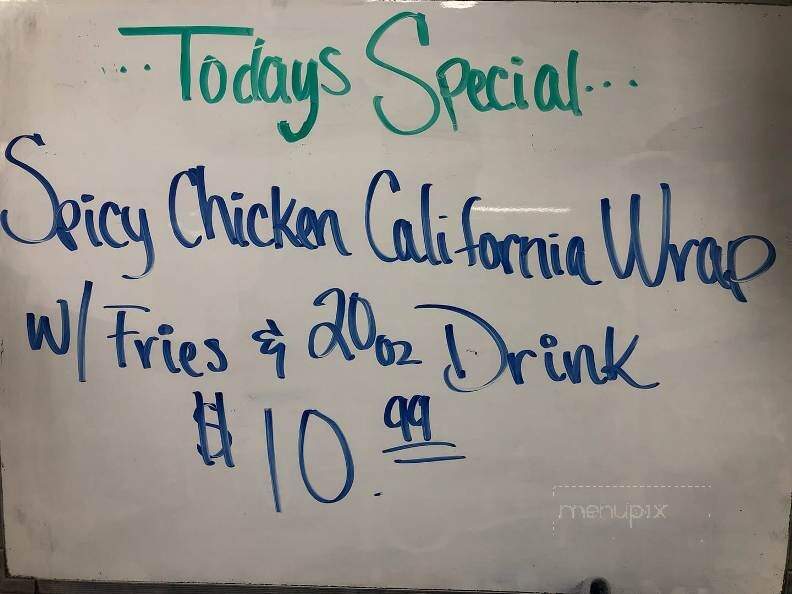 ...Todays Special...
Spicy Chicken California Wrap
w/ Fries & 20oz Drink
$10.99
menupix